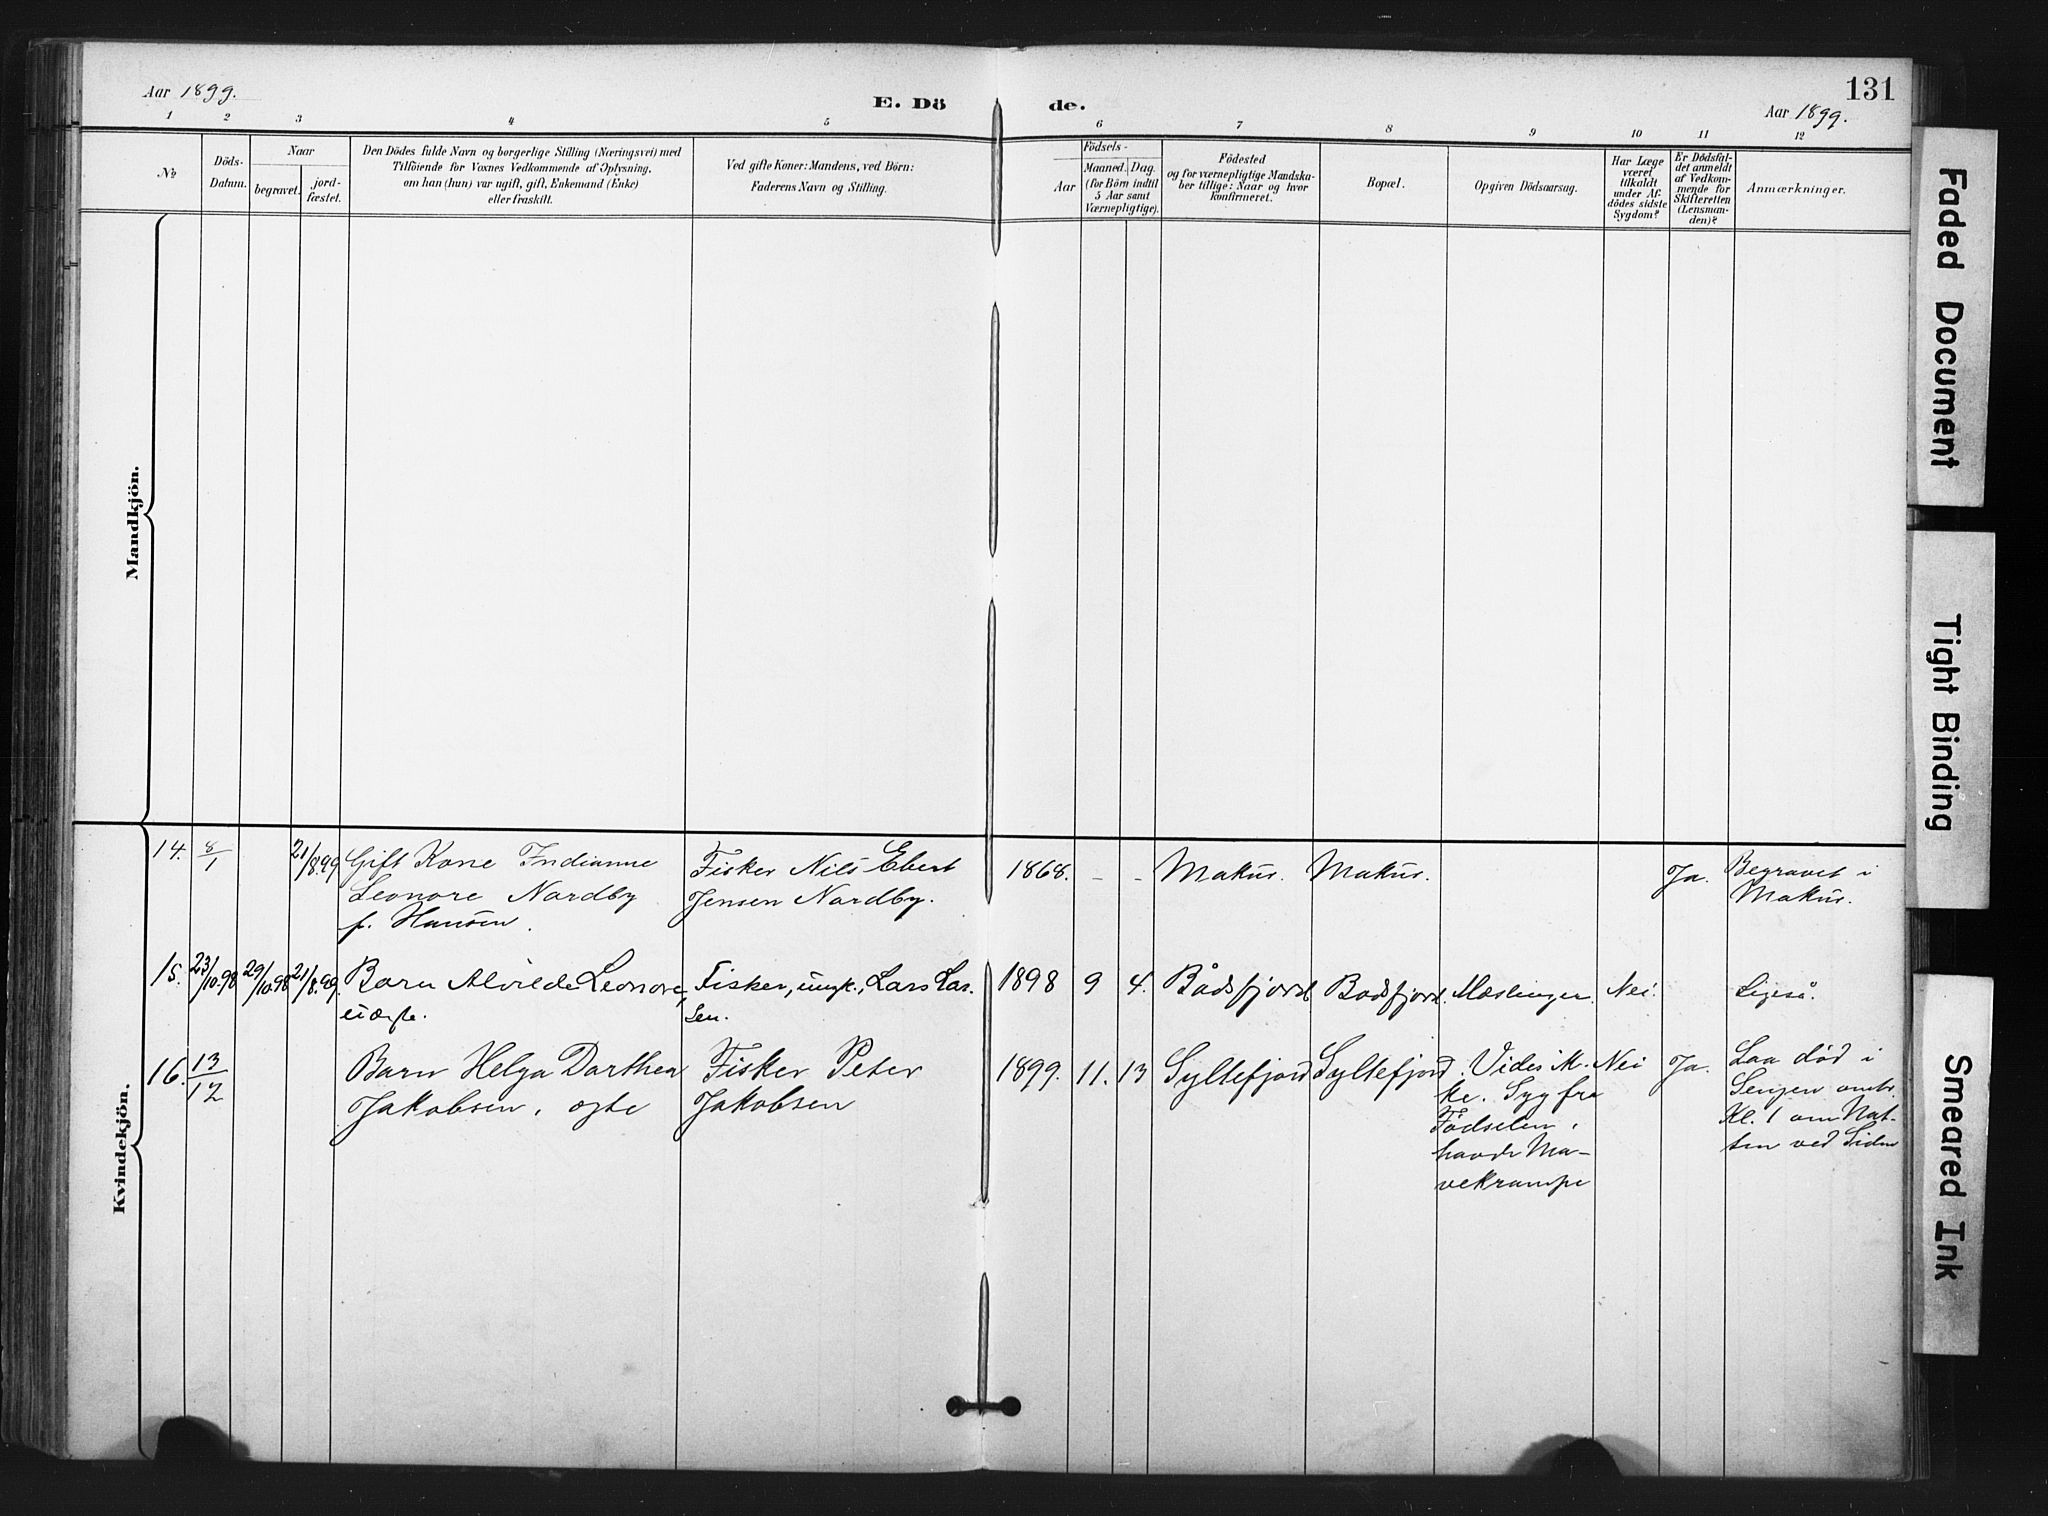 Aar 1899.
E. Dö
de.
131
Aar 1899.
1 2 3 4 5 6 7 8 9 10 11 12
No
Döds-
Datum.
Naar
begravet.
jord-
fæstet.
Den Dödes fulde Navn og borgerlige Stilling (Næringsvei) med
Tilföiende for Voxnes Vedkommende af Oplysning,
om han (hun) var ugift, gift, Enkemand (Enke)
eller fraskilt.
Ved gifte Koner: Mandens, ved Börn:
Faderens Navn og Stilling.
Födsels-
Aar
Maaned. Dag.
(for Börn indtil
5 Aar samt
Værnepligtige).
Födested
og for værnepligtige Mandska-
ber tillige: Naar og hvor
konfirmeret.
Bopæl.
Opgiven Dödsaarsag.
Har Læge
været
tilkaldt
under Af-
dödes sidste
Sygdom?
Er Dödsfal-
det anmeldt
af Vedkom-
mende for
Skifteretten
(Lensman-
den)?
Anmærkninger.
Mandkjön.
Kvindekjön.
14. 8/1 21/8.99 Gift Kone Indianne
Leonore Nordby
f. Hansen.
Fisker Nils Ebert
Jensen Nordby.
1868. - - Makur. Makur. Ja. Begravet i
Makur.
15. 23/10.98 29/10.98 21/8.99. Barn Alvilde Leonore,
uægte.
Fisker, ungk., Lars Lar-
sen.
1898 9 4. Bådsfjord Bodsfjord. Mæslinger. Nei. Ligeså.
16. 13/12 Barn Helga Dorthea
Jakobsen, ægte
Fisker Peter
Jakobsen
1899. 11. 13 Syltefjord Syltefjord. Vides ik- Nei Ja. Laa död i
ke. Syg fra
Födselen,
havde Ma-
vekrampe
Sengen omtr.
Kl. 1 om Nat-
ten ved Siden
Faded Document
Tight Binding
Smeared Ink